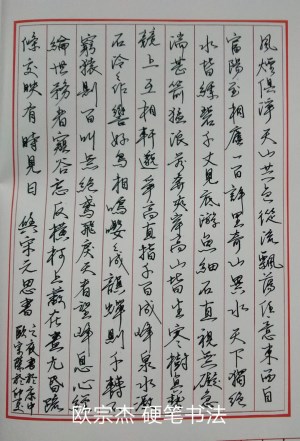 風煙俱淨天山共色從流飄蕩任意東西自
富陽至桐廬一百許里奇山異水天下獨絕
水皆縹碧千丈見底游魚細石直視無礙急
湍甚箭猛浪若奔夾岸高山皆生寒樹負勢
競上互相軒邈爭高直指千百成峰泉水激
石泠々作響好鳥相鳴嚶々成韻蟬則千轉不
窮猿則百叫無絕鳶飛戾天者望峰息心經
綸世務者窺谷忘反橫柯上蔽在晝昏疏
條交映有時見日 與宋元思書
欧宗杰 硬笔书法